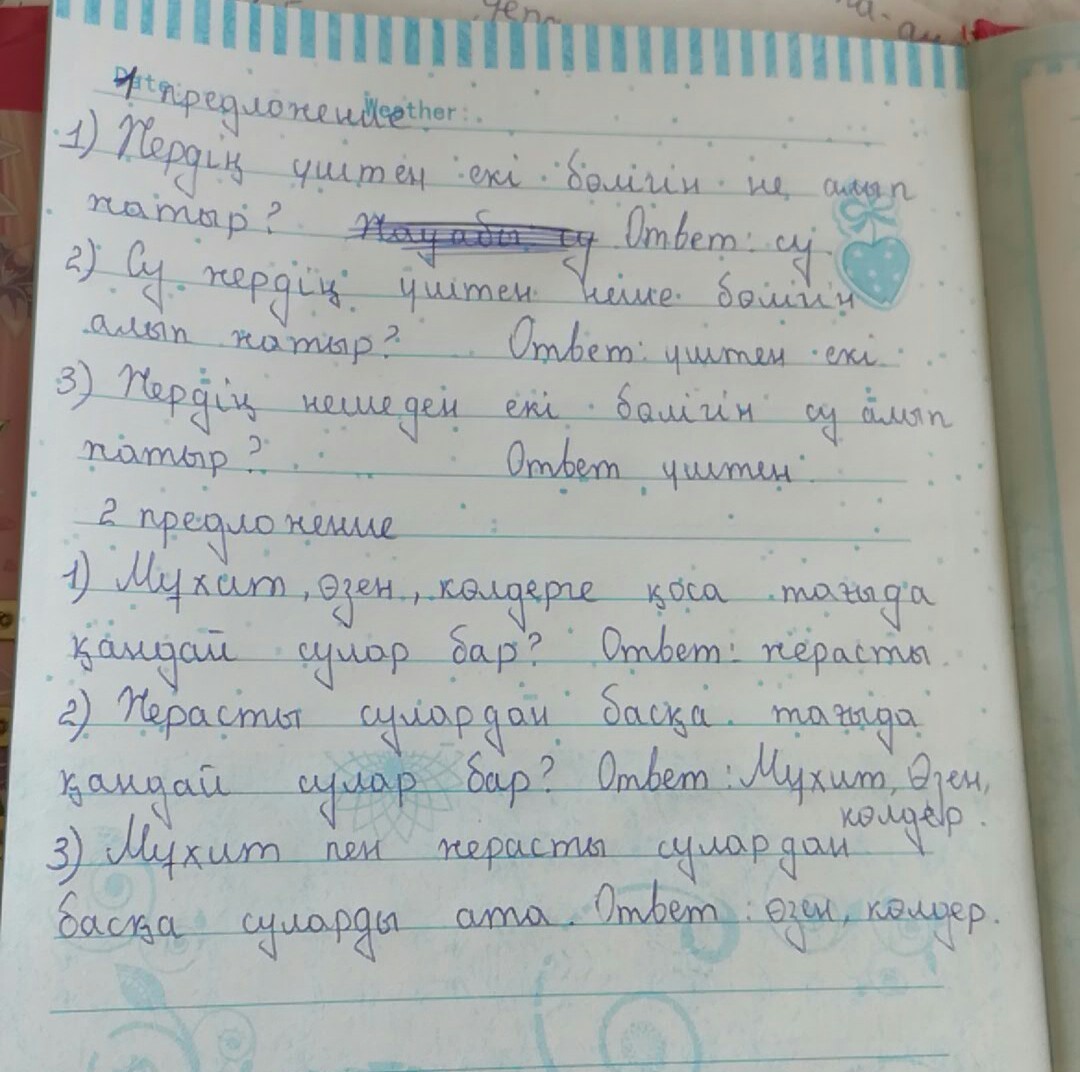 1 предложение
Weather:
1) Жердің үштен екі бөлігін не алып
жатыр? Ответ: су
2) Су жердің үштен неше бөлігін
алып жатыр? Ответ: үштен екі
3) Жердің нешеден екі бөлігін су алып
жатыр? Ответ үштен
2 предложение
1) Мұхит, өзен, көлдерге қоса тағыда
қандай сулар бар? Ответ: жерасты
2) Жерасты сулардан басқа тағыда
қандай сулар бар? Ответ: Мұхит, Өзен,
көлдер.
3) Мұхит пен жерасты сулардан
басқа суларды ата. Ответ: өзен, көлдер.